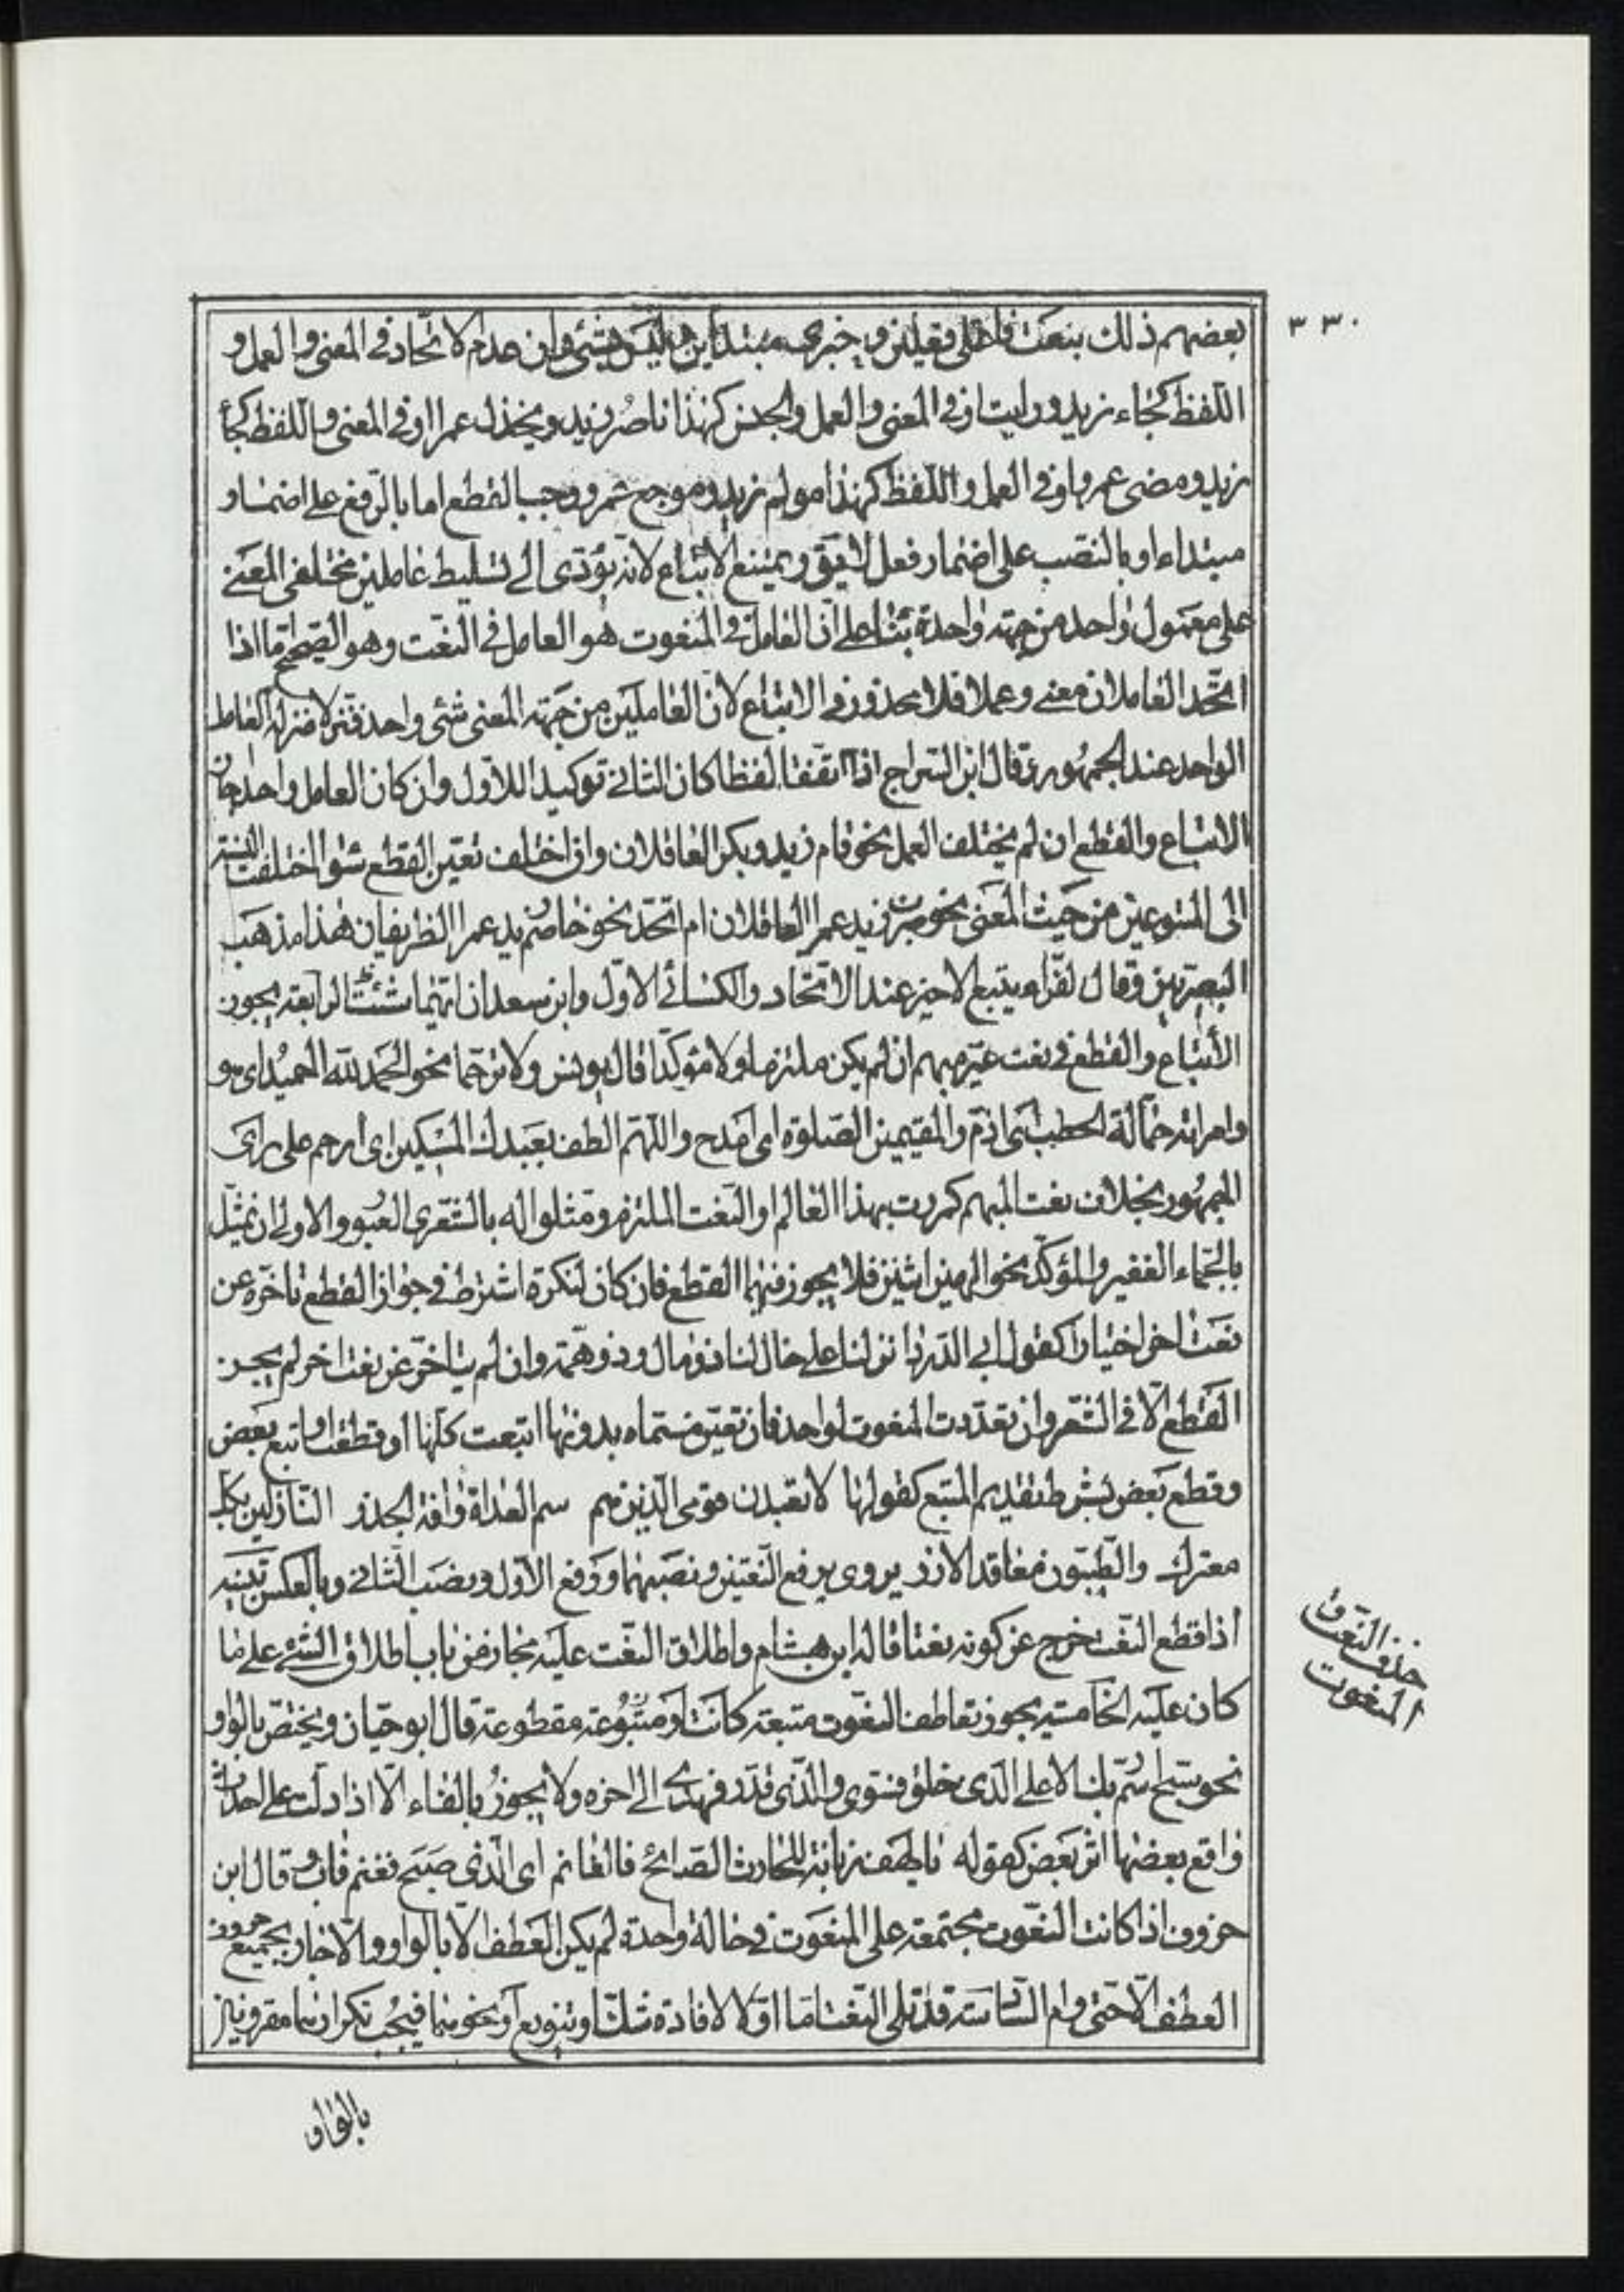 ٣٣٠
بعضهم ذلك بنعت فاعلى فعلين و خبرى مبتداين وليس بشئ وان عدم الاتحاد فى المعنى والعمل و
اللفظ كجاء زيد ورايت او فى المعنى والعمل والجنس كهذا ناصر زيد ويخذل عمرا او فى المعنى واللفظ كجاء
زيد ومضى عمرو او فى العمل واللفظ كهذا مولم زيد وموجع عمرو وجب القطع اما بالرفع على اضمار
مبتداء او بالنصب على اضمار فعل لايق ويمتنع الاتباع لانه يؤدى الى تسليط عاملين مختلفى المعنى
على معمول واحد من جهته واحدة بناء على ان العامل فى المنعوت هو العامل فى النعت وهو الصحيح اما اذا
اتحد العاملان معنى وعملا فلا محذور فى الاتباع لان العاملين من جهته المعنى شئ واحد فنزلا منزله العامل
الواحد عند الجمهور وقال ابن السراج اذا اتفقا لفظا كان الثانى توكيدا للاول وان كان العامل واحدا جاز
الاتباع والقطع ان لم يختلف العمل نحو قام زيد وبكر العاقلان وان اختلف تعين القطع سواء اختلفت النسبة
الى المتبوعين من حيث المعنى نحو ضرب زيد عمرا العاقلان ام اتحد نحو خاصم زيد عمرا الظريفان هذا مذهب
البصريين وقال الفراء يتبع الاخير عند الاتحاد والكسائى الاول وابن سعدان ايهما شئت الرابعة يجوز
الأتباع والقطع فى نعت غير مبهم ان لم يكن ملتزما ولا مؤكدا قال يونس ولا ترحما نحو الحمد لله الحميد اى هو
وامراته حمالة الحطب اى اذم والمقيمين الصلوة اى امدح واللهم الطف بعبدك المسكين اى ارحم على راى
الجمهور بخلاف نعت المبهم كمررت بهذا العالم او النعت الملتزم ومثلوا له بالشعرى العبور والاولى ان يمثل
بالجماء الغفير والمؤكد نحو الهين اثنين فلا يجوز فيها القطع فان كان لنكرة اشترط فى جواز القطع تاخره عن
نعت اخر اختيارا كقول ابى الدرداء نزلنا على خال لنا ذو مال وذو همة وان لم يتاخر عن نعت اخر لم يجز
القطع الا فى الشعر وان تعددت النعوت لواحد فان تعين مسماه بدونها اتبعت كلها او قطعت او اتبع بعض
وقطع بعض بشرط تقديم المتبع كقولها لا يبعدن قومى الذين هم سم العداة وافة الجزر النازلين بكل
معترك والطيبون معاقد الازر يروى برفع النعتين ونصبهما ورفع الاول ونصب الثانى وبالعكس تنبيه
اذا قطع النعت خرج عن كونه نعتا قاله ابن هشام واطلاق النعت عليه مجاز من باب اطلاق الشئ على ما
كان عليه الخامسة يجوز تعاطف النعوت متبعته كانت او مقطوعته قال ابو حيان ويختص بالواو
نحو سبح اسم ربك الاعلى الذى خلق فسوى والذى قدر فهدى الى اخره ولا يجوز بالفاء الا اذا دلت على احداث
واقع بعضها اثر بعض كقوله يا لهف زيابة للحارث الصابح فالغانم اى الذى صبح فغنم فاب وقال ابن
خروف اذا كانت النعوت مجتمعة على المنعوت فى حالة واحدة لم يكن العطف الا بالواو والا جاز بجميع حروف
العطف الا حتى وام السادسة قد تلى النعت اما او لا لافادة شك او تنويع او نحوهما فيجب تكرارهما مقرونين
بالواو
حذف النعت
المنعوت